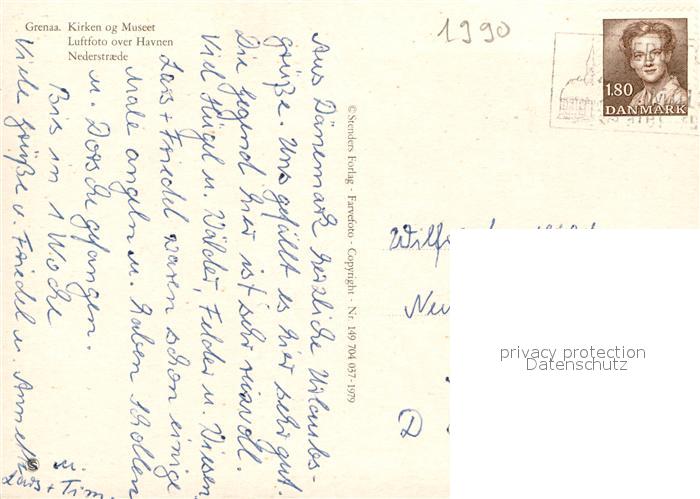 Grenaa. Kirken og Museet
Luftfoto over Havnen
Nederstræde
1990
1.80
DANMARK
Aus Dänemark herzliche Urlaubs-
grüße. Uns gefällt es hier sehr gut.
Die Gegend hier ist sehr reizvoll.
Viel Hügel u. Wälder, Felder u. Wiesen
Lars + Friedel waren schon einige
Male angeln u. haben Schollen
u. Dorsche gefangen.
Bis in 1 Woche
Viele Grüße v. Friedel u. Annett
u.
Lars + Tim
© Stenders Forlag - Farvefoto - Copyright - Nr. 149 704 037-1979
D
privacy protection
Datenschutz